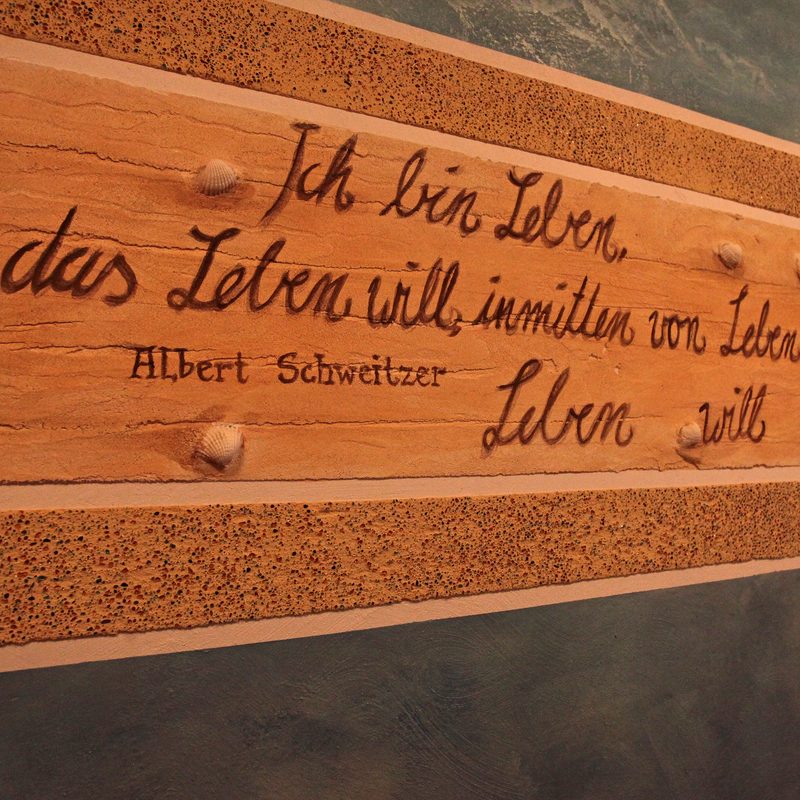 Ich bin Leben,
das Leben will, inmitten von Leben
Albert Schweitzer
Leben will